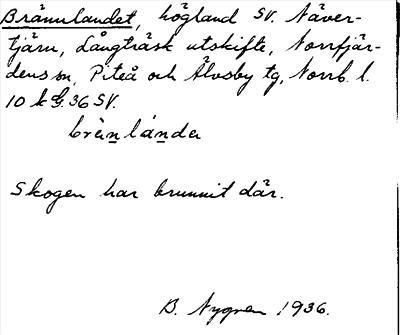 Brännlandet, högland SV. Näver-
tjärn, Långträsk utskifte, Norrfjär-
dens sn, Piteå och Älvsby tg, Norrb. l.
10 k G. 36 SV.
brànlánda
Skogen har brunnit där.
B. Nygren 1936.